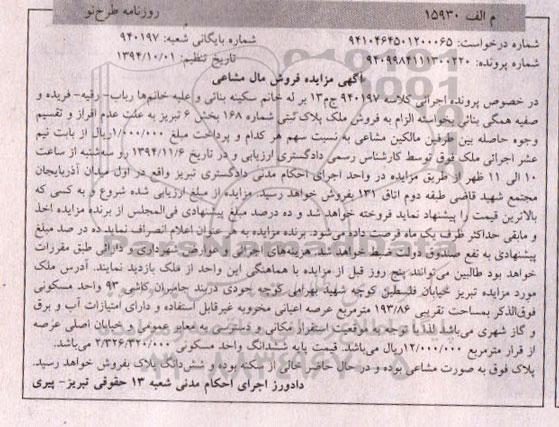 م الف ۱۵۹۳۰
روزنامه طرح نو
شماره درخواست: ۹۴۱۰۴۶۴۵۰۱۲۰۰۰۶۵
شماره بایگانی شعبه: ۹۴۰۱۹۷
شماره پرونده: ۹۴۰۹۹۸۴۱۱۱۳۰۰۲۲۰
تاریخ تنظیم: ۱۳۹۴/۱۰/۰۱
آگهی مزایده فروش مال مشاعی
در خصوص پرونده اجرائی کلاسه ۹۴۰۱۹۷ ج۱۳ بر له خانم سکینه بنائی و علیه خانم‌ها رباب- رقیه- فریده و
صفیه همگی بنائی بخواسته الزام به فروش ملک پلاک ثبتی شماره ۱۶۸ بخش ۶ تبریز به علت عدم افراز و تقسیم
وجوه حاصله بین طرفین مالکین مشاعی به نسبت سهم هر کدام و پرداخت مبلغ ۱/۰۰۰/۰۰۰ریال از بابت نیم
عشر اجرائی ملک فوق توسط کارشناس رسمی دادگستری ارزیابی و در تاریخ ۱۳۹۴/۱۱/۶ رو سه‌شنبه از ساعت
۱۰ الی ۱۱ ظهر از طریق مزایده در واحد اجرای احکام مدنی دادگستری تبریز واقع در اول میدان آذربایجان
مجتمع شهید قاضی طبقه دوم اتاق ۱۳۱ بفروش خواهد رسید. مزایده از مبلغ ارزیابی شده شروع و به کسی که
بالاترین قیمت را پیشنهاد نماید فروخته خواهد شد و ده درصد مبلغ پیشنهادی فی‌المجلس از برنده مزایده اخذ
و مابقی حداکثر ظرف یک ماه فرصت داده می‌شود. برنده مزایده به هر عنوان اعلام انصراف نماید ده در صد مبلغ
پیشنهادی به نفع صندوق دولت ضبط خواهد شد. هزینه‌های اجرائی و عوارض شهرداری و دارائی طبق مقررات
خواهد بود طالبین می‌توانند پنج روز قبل از مزایده با هماهنگی این واحد از فلک بازدید نمایند. آدرس ملک
مورد مزایده تبریز خیابان فلسطین کوچه شهید بهرامی کوچه جودی دربند جامبران کاشی ۹۳ واحد مسکونی
فوق‌الذکر بمساحت تقریبی ۱۹۳/۸۶ مترمربع عرصه اعیانی مخروبه غیرقابل استفاده و دارای امتیازات آب و برق
و گاز شهری می‌باشد لذا با توجه به موقعیت استقرار مکانی و دسترسی به معابر عمومی و خیابان اصلی عرصه
از قرار مترمربع ۱۲/۰۰۰/۰۰۰ریال می‌باشد. قیمت پایه ششدانگ واحد مسکونی ۲/۳۲۶/۳۲۰/۰۰۰ می‌باشد.
پلاک فوق به صورت مشاعی بوده و در حال حاضر خالی از سکنه بوده و شش‌دانگ پلاک بفروش خواهد رسید.
دادورز اجرای احکام مدنی شعبه ۱۳ حقوقی تبریز- پیری